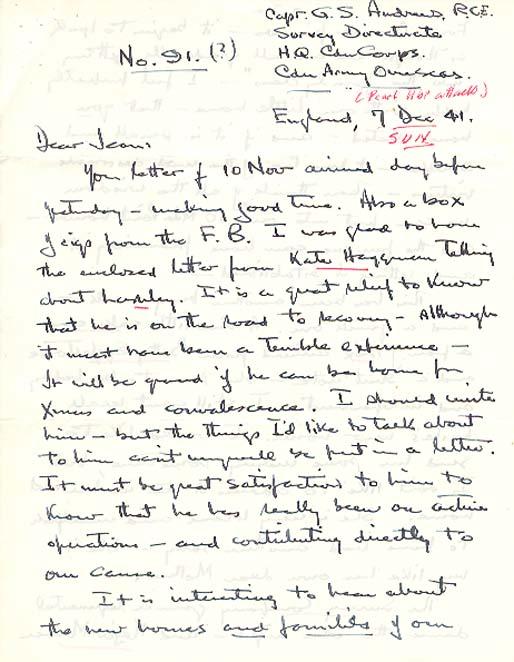 Capt. G. S. Andrews, R.C.E.
Survey Directorate
H.Q. Cdn Corps.
Cdn Army Overseas.
No. 91. (?)
(Pearl Hbr attack)
England, 7 Dec 41.
SUN
Dear Jean:
Your letter of 10 Nov arrived day before
yesterday – making good time. Also a box
of cigs from the F. B. I was glad to have
the enclosed letter from Kate Haygman telling
about. It is a great relief to know
that he is on the road to recovery – Although
it must have been a terrible experience –
It will be grand if he can be home for
Xmas and convalescence. I should write
him – but the things I'd like to talk about
to him cant very well be put in a letter.
It must be great satisfaction to him to
know that he has really been on active
operations – and contributing directly to
our cause.
It is interesting to hear about
the new homes and families of our